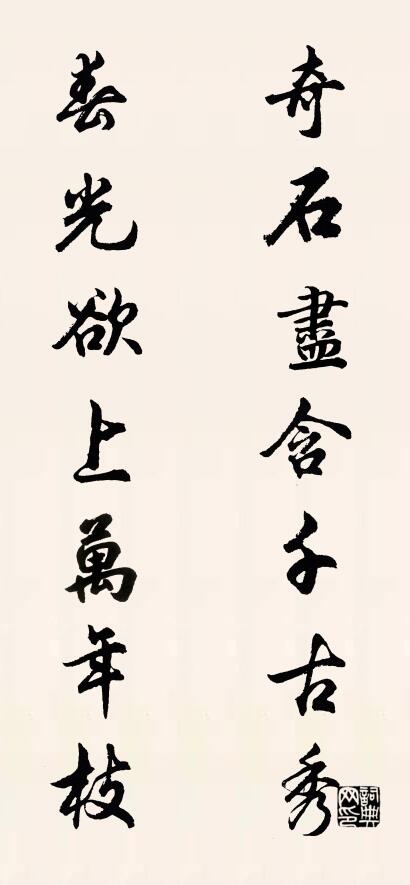 奇石盡含千古秀
春光欲上萬年枝
詞典网印